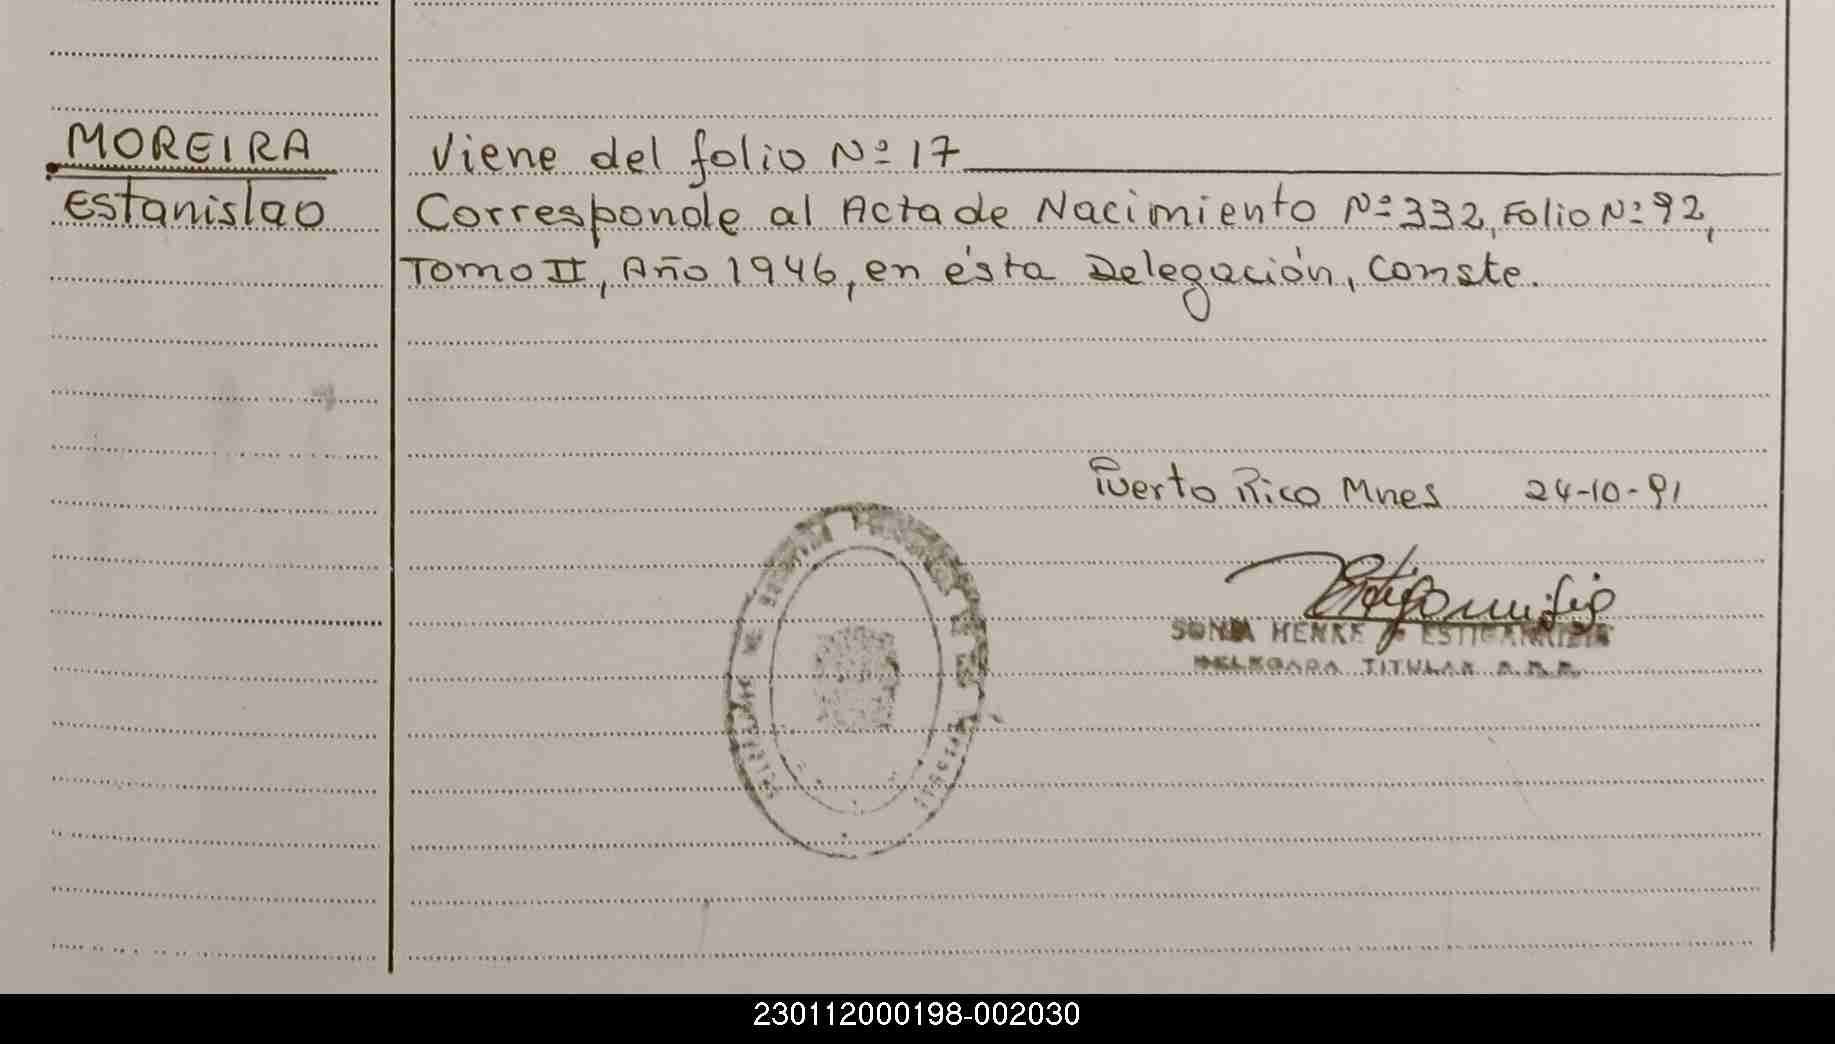 MOREIRA
Estanislao
Viene del folio Nº 17
Corresponde al Acta de Nacimiento Nº 332, Folio Nº 92,
Tomo II, Año 1946, en ésta Delegación, Conste.
Puerto Rico Mnes 24-10-91
SONIA HENKE
DELEGADA TITULAR
230112000198-002030